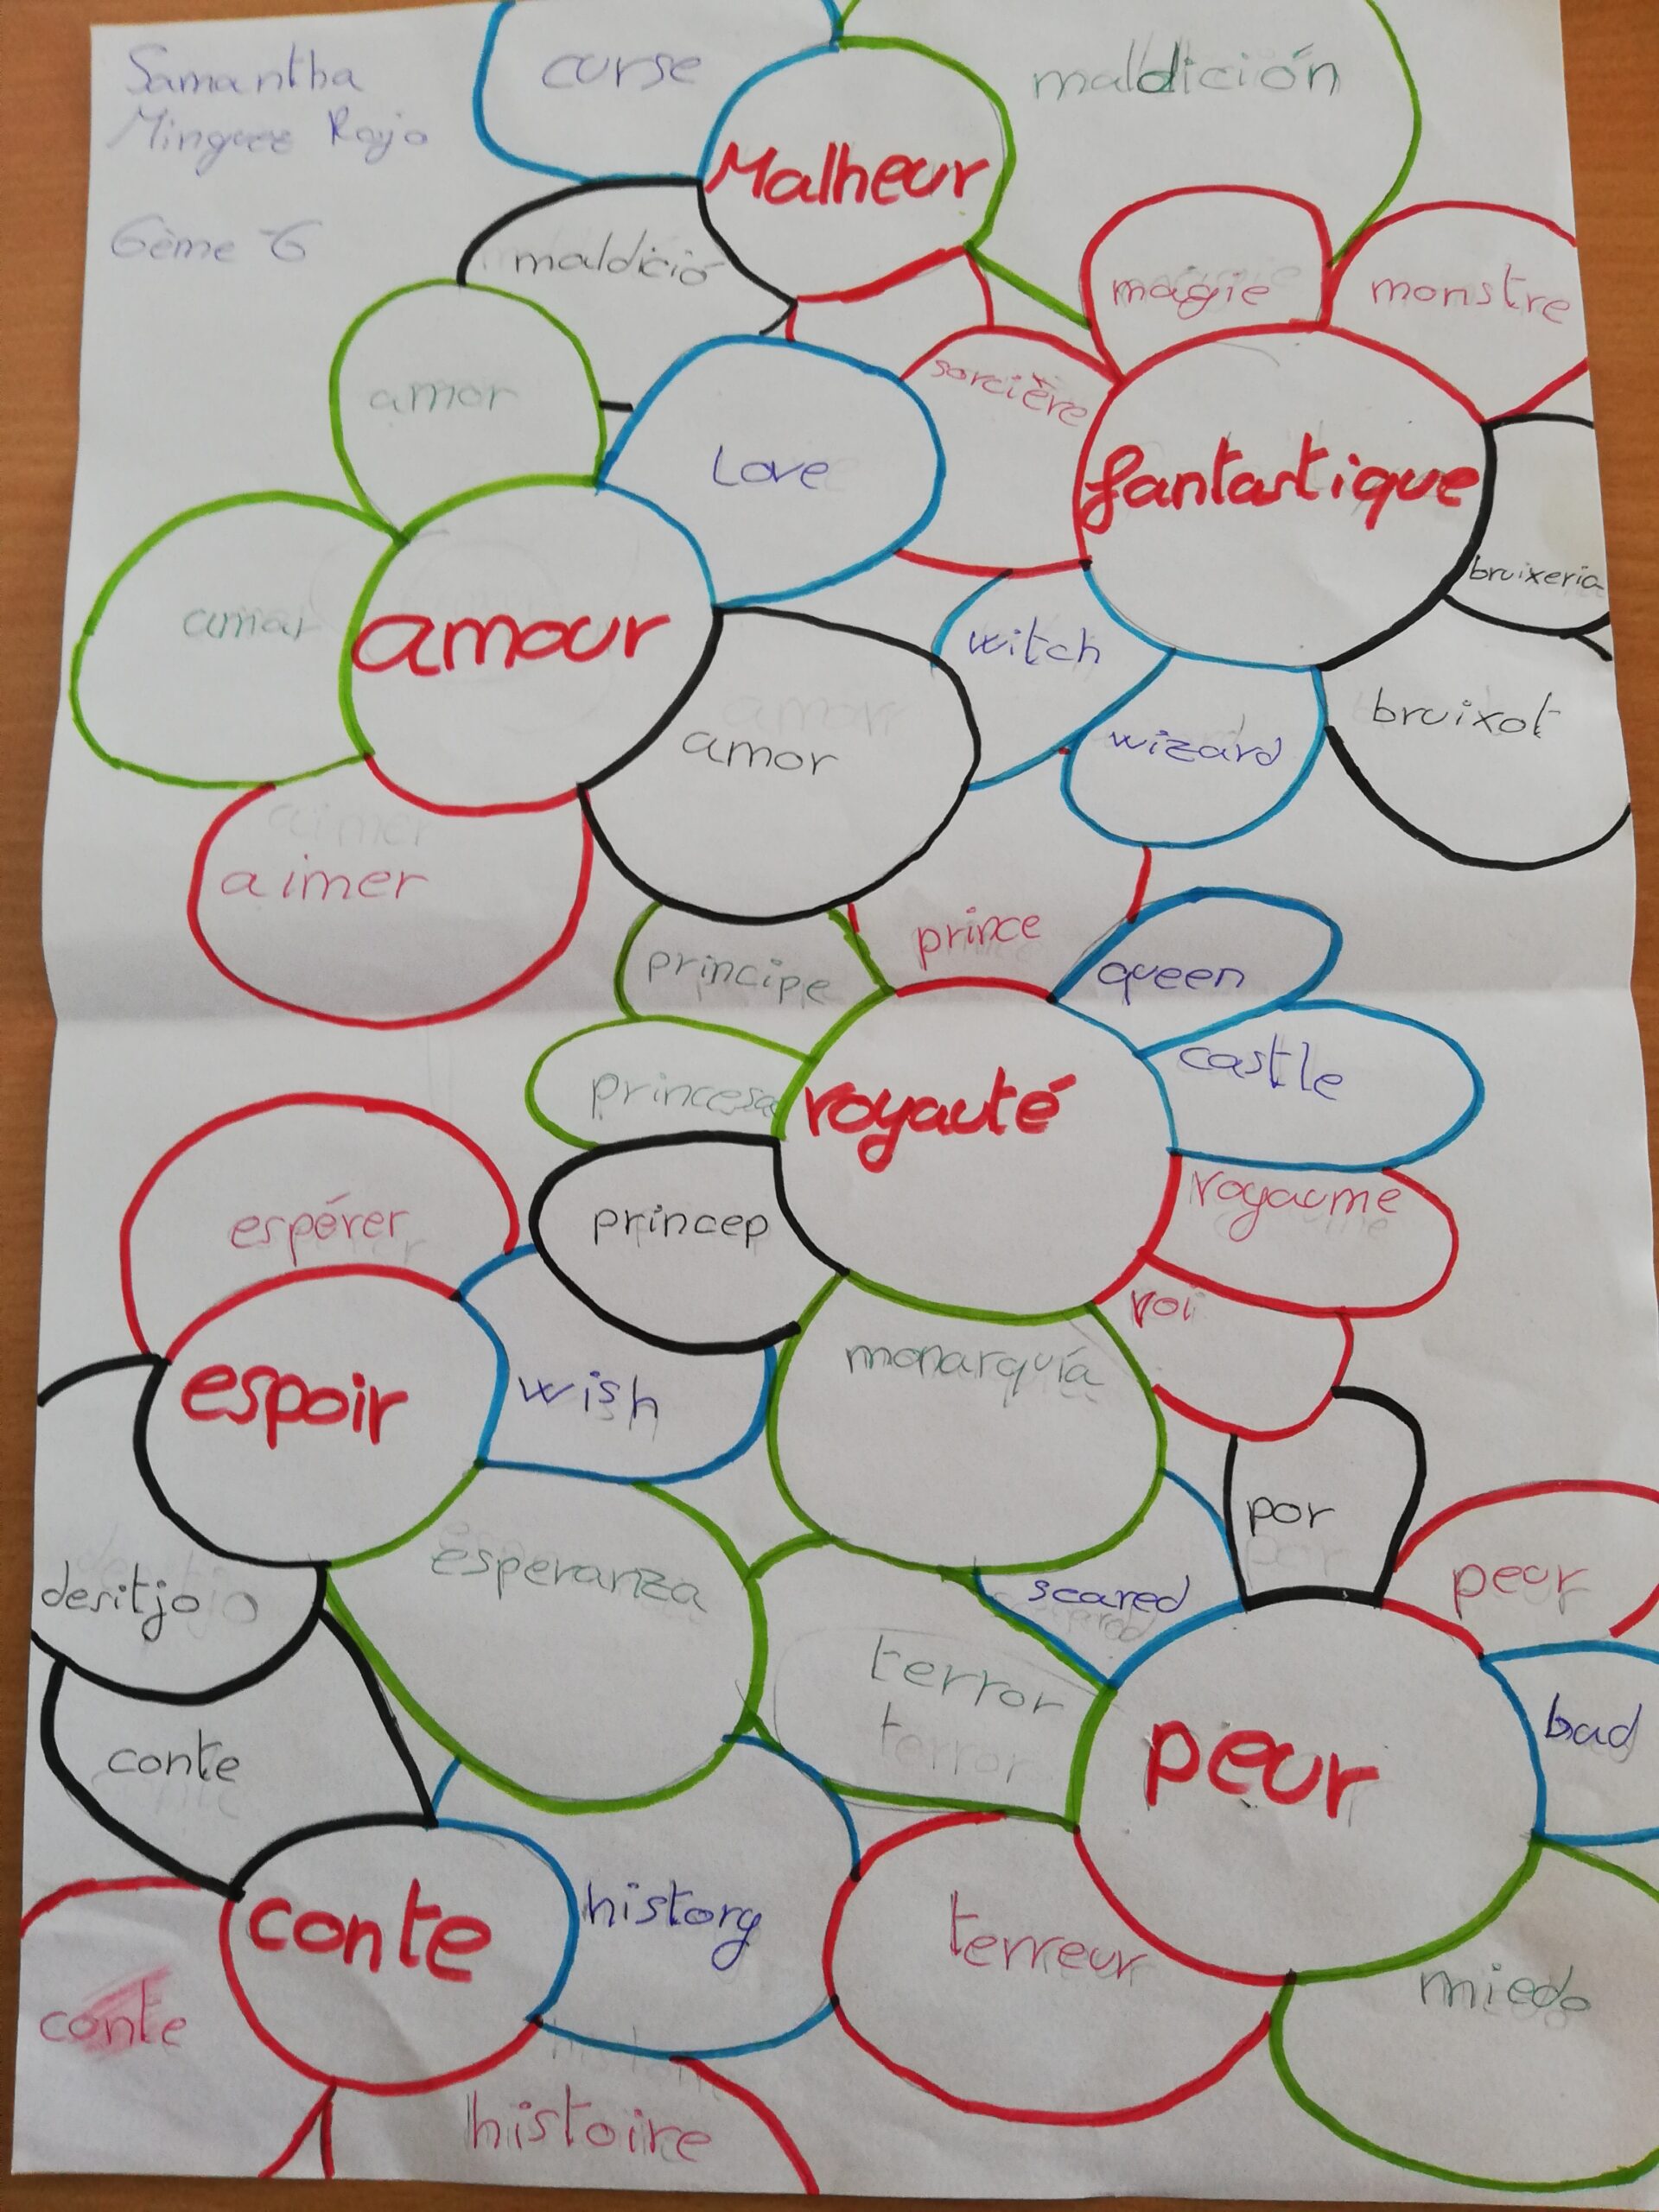 Samantha
Minguez Rojo
6ème 6
curse
maldición
Malheur
maldició
magie
monstre
sorcière
amor
Love
fantastique
bruixeria
amar
amour
witch
amor
bruixot
wizard
aimer
prince
principe
queen
castle
princesa
royauté
royaume
espérer
princep
roi
monarquía
espoir
wish
por
peur
esperanza
scared
desitjo
terror
terror
bad
peur
conte
history
conte
terreur
miedo
conte
histoire